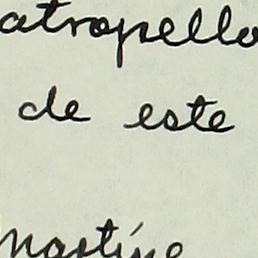 atropello
de este